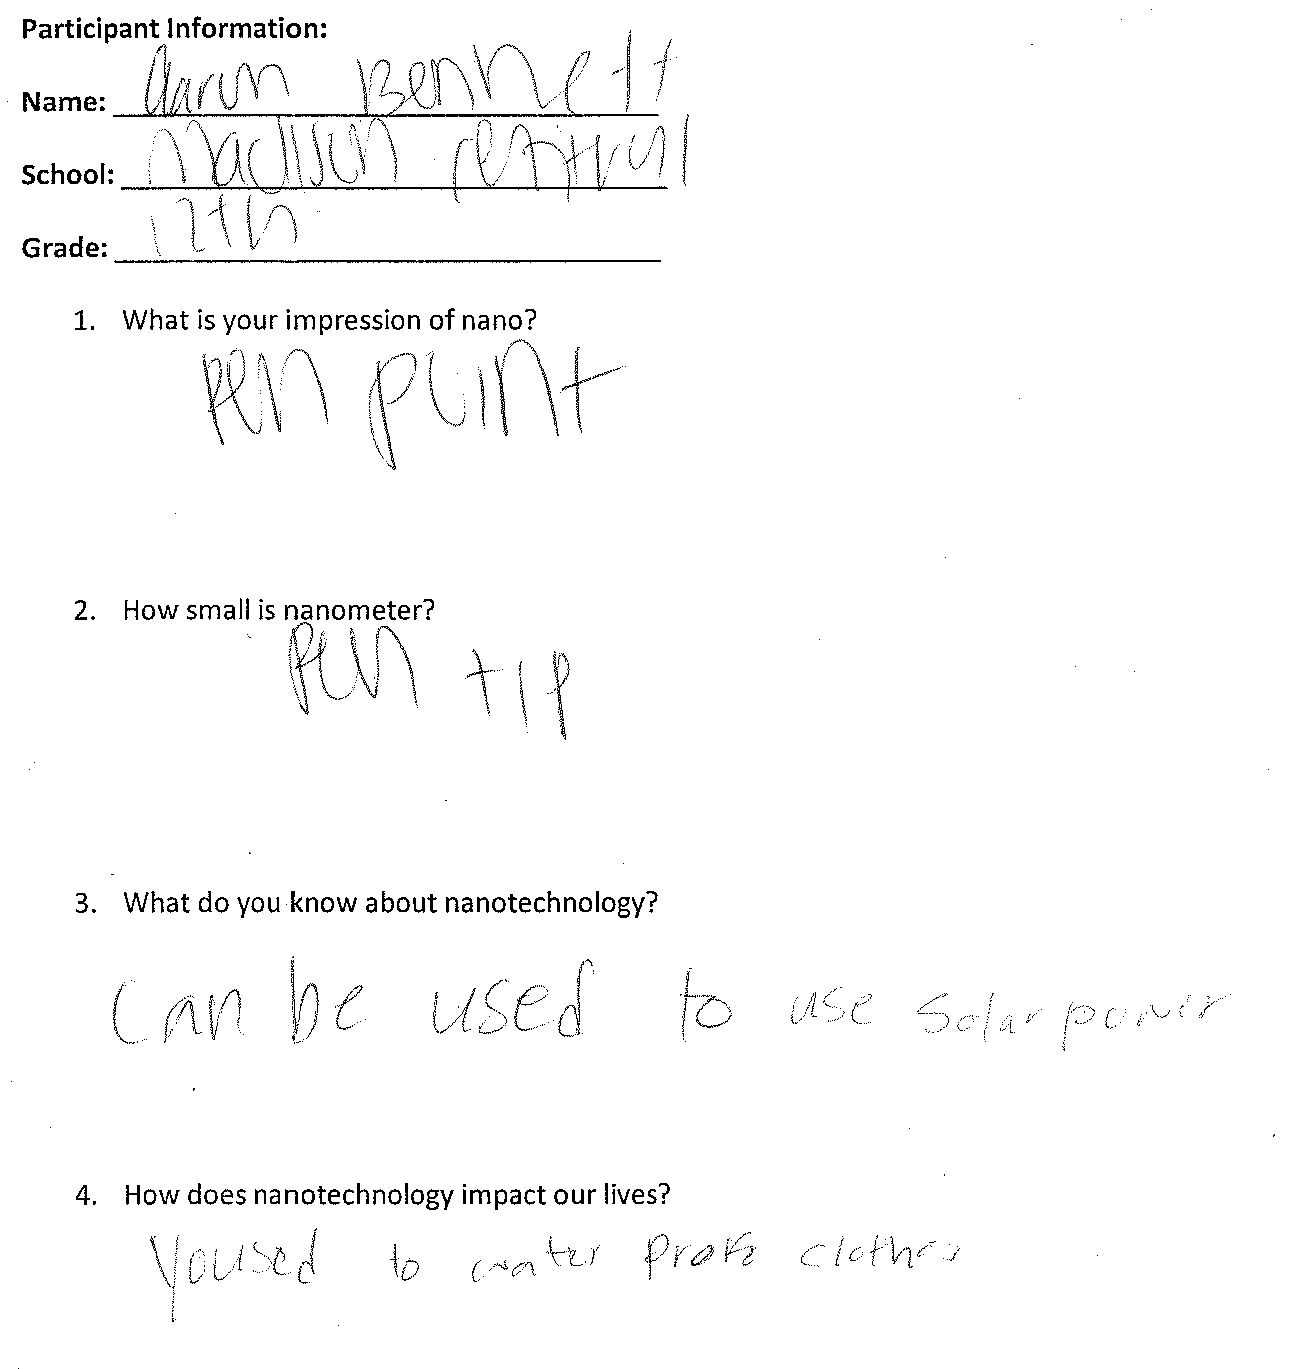 Participant Information:
Name: Aaron Bennett
School: Madison central
Grade: 12th
1. What is your impression of nano?
Pen point
2. How small is nanometer?
Pen tip
3. What do you know about nanotechnology?
Can be used to use solar power
4. How does nanotechnology impact our lives?
Yoused to water clothes